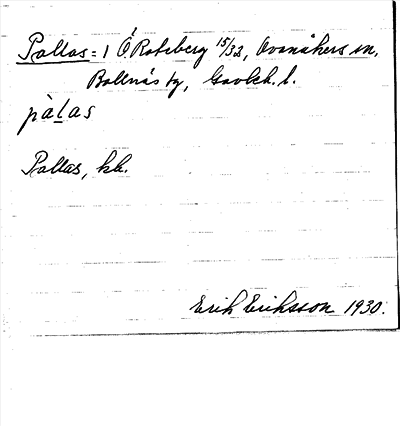 Pallas = 1 Ö. Roteberg 15/32, Ovanåkers sn,
Bollnäs tg, Gävleb. l.
pàlas
Pallas, kh.
Erik Eriksson 1930.